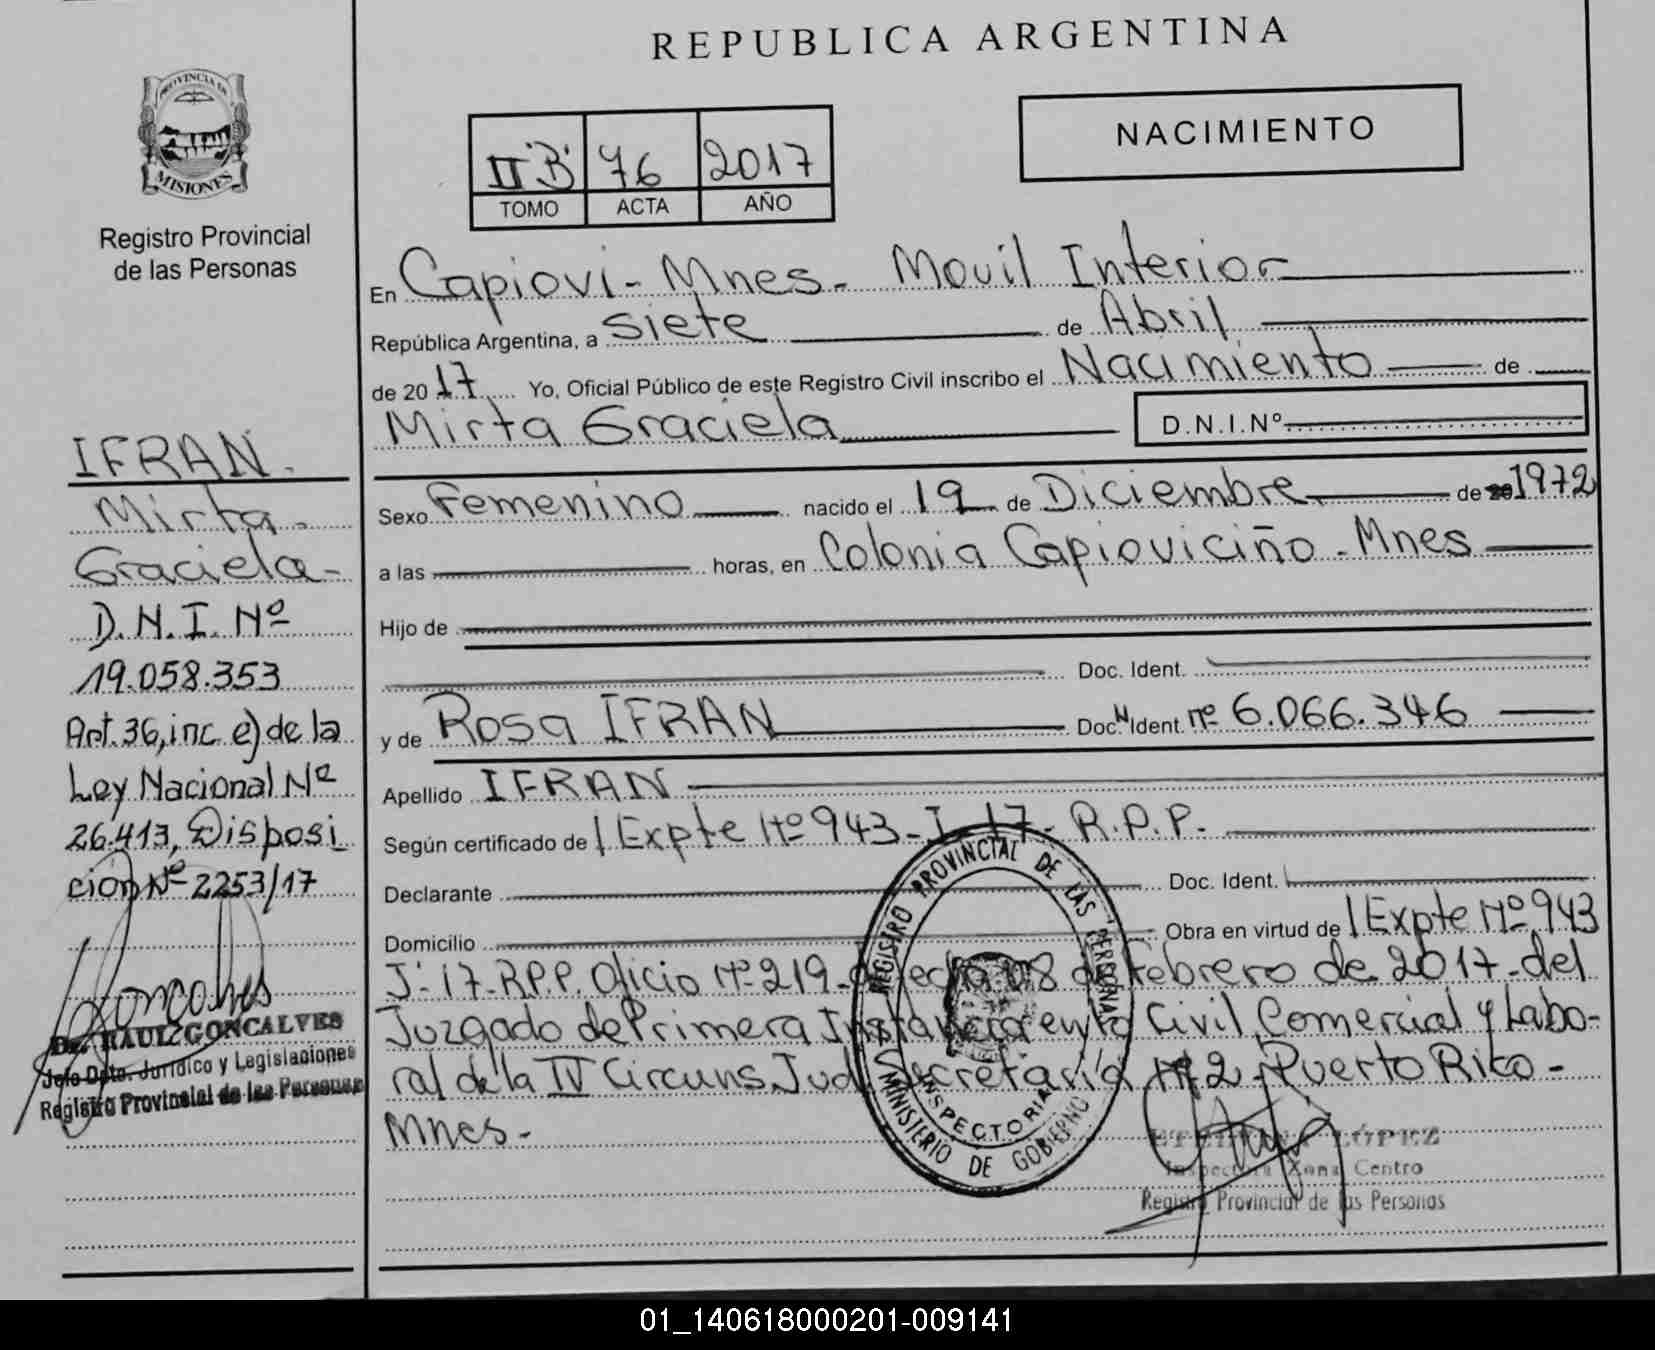 REPUBLICA ARGENTINA
PROVINCIA DE
MISIONES
Registro Provincial
de las Personas
NACIMIENTO
II "B" 76 2017
TOMO ACTA AÑO
En Capiovi - Mnes - Movil Interior
República Argentina, a siete de Abril
de 2017 Yo, Oficial Público de este Registro Civil inscribo el Nacimiento de
Mirta Graciela D.N.I.Nº
Sexo Femenino nacido el 19 de Diciembre de 20 1972
a las horas, en Colonia Capioviciño - Mnes
Hijo de
Doc. Ident.
y de Rosa IFRAN Doc. N Ident. nº 6.066.346
Apellido IFRAN
Según certificado de / Expte Nº 943-I-17- R.P.P.
Declarante Doc. Ident.
Domicilio Obra en virtud de / Expte Nº 943
I-17-R.P.P. Oficio Nº 219 de fecha 08 de Febrero de 2017 - del
Juzgado de Primera Instancia en lo Civil, Comercial y Labo-
ral de la IV Circuns. Jud. Secretaría Nº 2 - Puerto Rico -
Mnes.-
IFRAN.
Mirta
Graciela-
D.N.I. Nº
19.058.353
Art. 36, inc e) de la
Ley Nacional Nº
26.413, Disposi
cion Nº 2253/17
Goncalves
Dr. RAUL GONCALVES
Jefe Dpto. Jurídico y Legislaciones
Registro Provincial de las Personas
REGISTRO PROVINCIAL DE LAS PERSONAS
INSPECTORIA
MINISTERIO DE GOBIERNO
LÓPEZ
Inspectora Zona Centro
Registro Provincial de las Personas
01_140618000201-009141